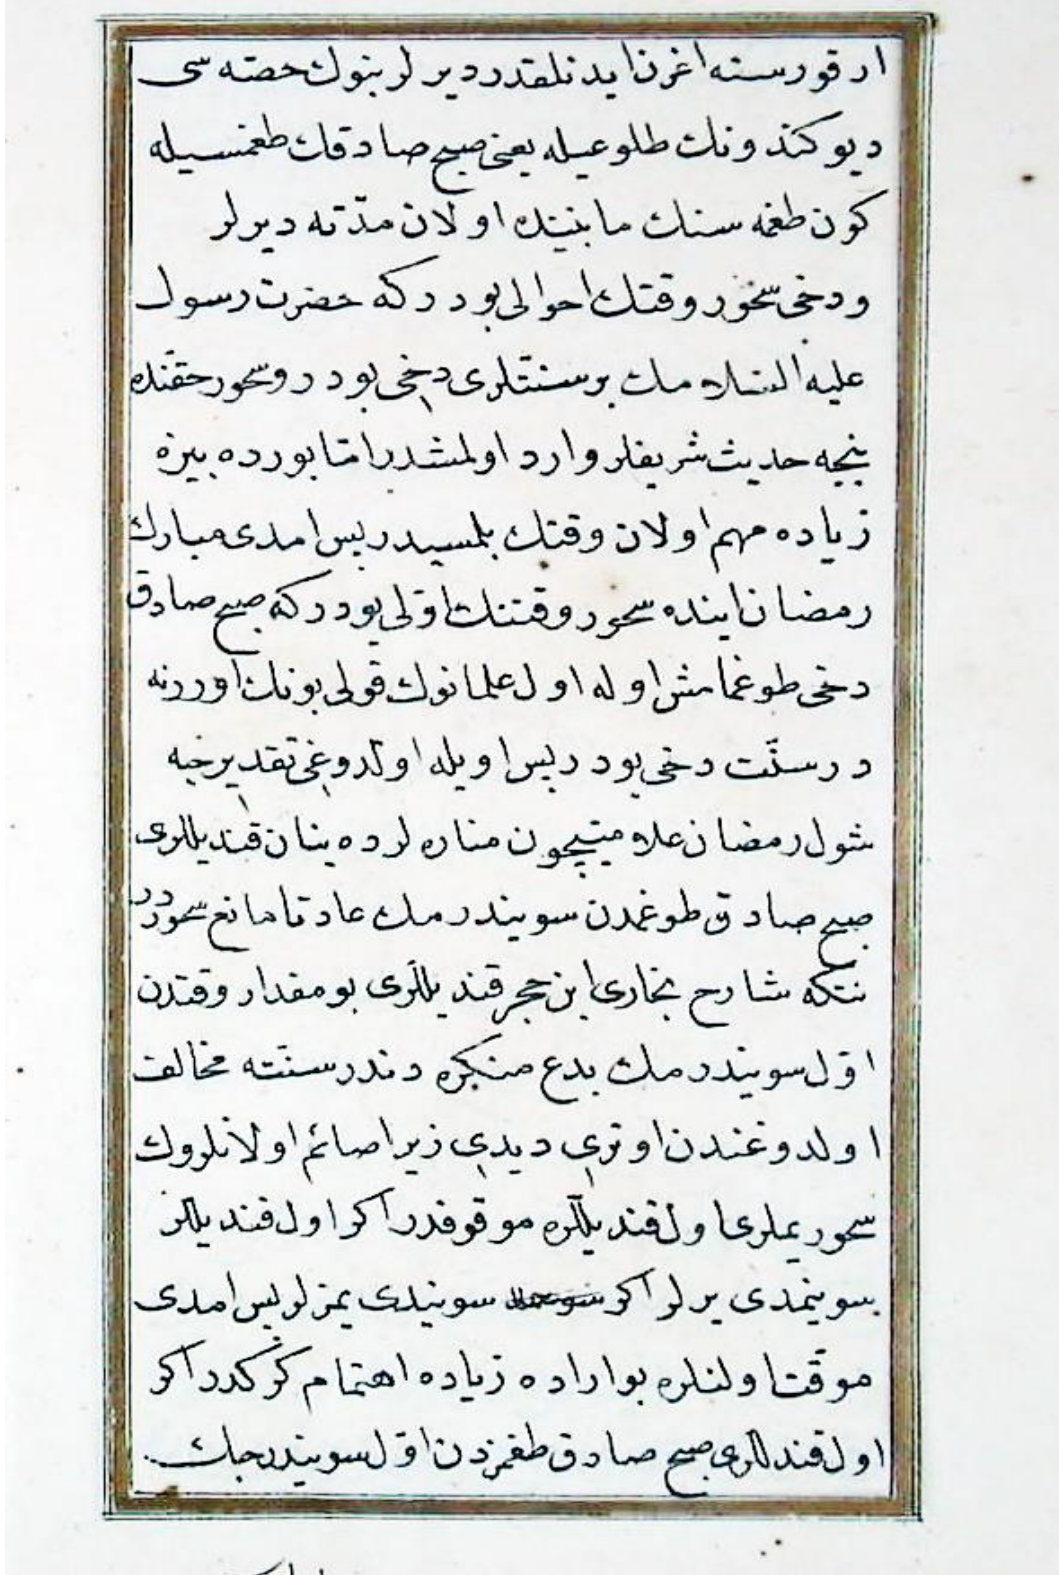 ار قورسته اغرن ایدنلقدر دیرلر بنوك حصته سی
دیو كندونك طلوعیله یعنی صبح صادقك طغمسیله
كون طغمه سنك مابیننده اولان مدّته دیرلر
ودخی سحور وقتك احوالی بودركه حضرت رسول
علیه السلامك بر سنتلری دخی بودر وسحور حقنده
نیچه حدیث شریفلر وارد اولمشدر امّا بورده بیزه
زیاده مهم اولان وقتك بلمسیدر پس امدی مبارك
رمضان اینده سحور وقتنك اوّلی بودركه صبح صادق
دخی طوغمامش اوله اول علمانوك قولی بونك اوزرنه
در سنّت دخی بودر پس اویله اولدوغی تقدیرجه
شول رمضان علامیتیچون مناره لرده ینان قندیللری
صبح صادق طوغمدن سویندرمك عادتا مانع سحوردر
نتكه شارح بخاری ابن حجر قندیللری بو مقدار وقتدن
اوّل سویندرمك بدع منكره دندر سنّته مخالف
اولدوغندن اوتری دیدی زیرا صائم اولانلروك
سحور یملری اول قندیللره موقوفدر اكر اول قندیللر
سوینمدی یرلر اكر سویندی یمزلر پس امدی
موقّت اولنلره بو اراده زیاده اهتمام كركدر اكر
اول قندیللری صبح صادق طغمزدن اوّل سویندرجك